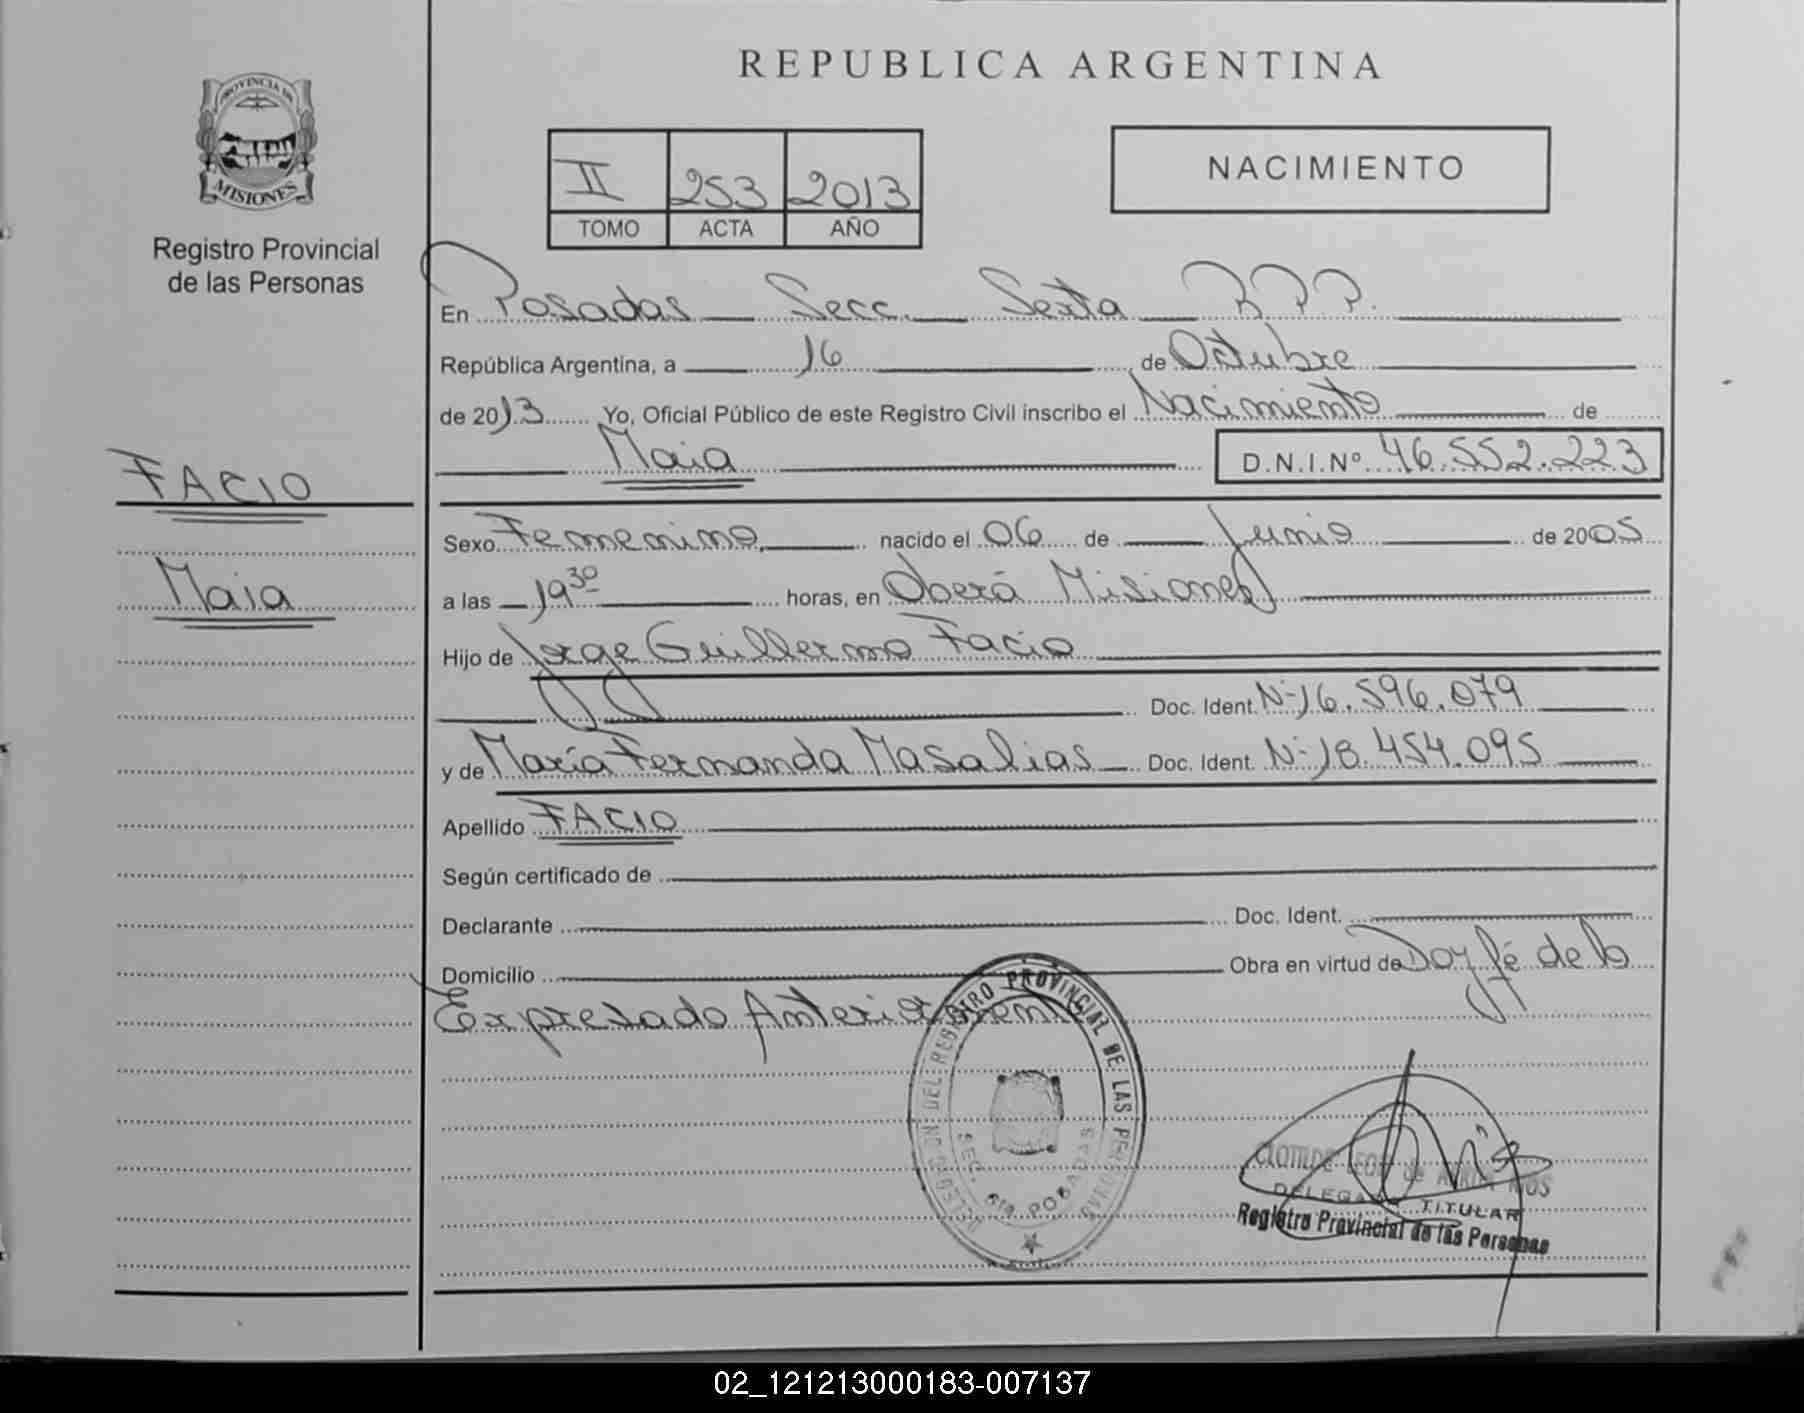 REPUBLICA ARGENTINA
PROVINCIA DE
MISIONES
Registro Provincial
de las Personas
II 253 2013
TOMO ACTA AÑO
NACIMIENTO
En Posadas Secc. Sexta R.P.P.
República Argentina, a 16 de Octubre
de 2013 Yo, Oficial Público de este Registro Civil inscribo el Nacimiento de
Maia D.N.I.Nº 46.552.223
FACIO
Maia
Sexo Femenino nacido el 06 de Junio de 2005
a las 19 30 horas, en Oberá Misiones
Hijo de Jorge Guillermo Facio
Doc. Ident. Nº 16.596.079
y de María Fernanda Masalias Doc. Ident. Nº 18.454.095
Apellido FACIO
Según certificado de
Declarante Doc. Ident.
Domicilio Obra en virtud de Doy fé de lo
Expresado Anteriormente
DELEGACION DEL REGISTRO PROVINCIAL DE LAS PERSONAS
SEC. 6ta. POSADAS
CLOTILDE de RIOS
DELEGADA TITULAR
Registro Provincial de las Personas
02_121213000183-007137